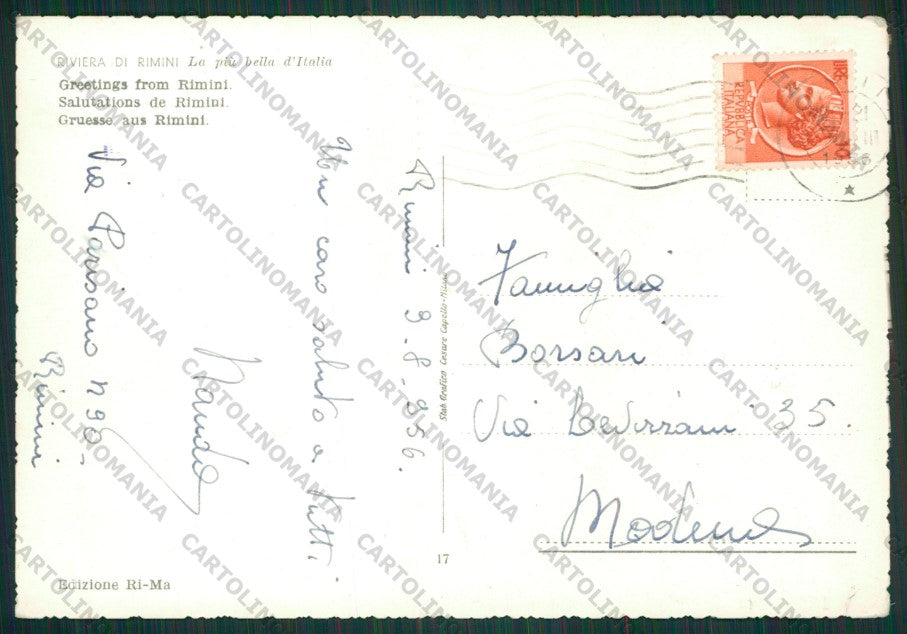 RIVIERA DI RIMINI La più bella d'Italia
Greetings from Rimini.
Salutations de Rimini.
Gruesse aus Rimini.
Rimini 9-8-956.
Un caro saluto a tutti
Via Parisano n 90-
Rimini
Stab. Grafico Cesare Capello-Milano
17
Edizione Ri-Ma
REPVBBLICA
ITALIANA
Famiglia
Borsari
Via 35.
Modena
CARTOLINOMANIA